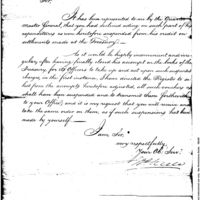 Sir,
It has been represented to me by the Quarter
master General, that you had declined acting on such part of his
expenditures as were heretofore suspended from his credit on
settlements made at the Treasury.
As it would be highly inconvenient and irre-
gular, after having finally closed his account on the books of the
Treasury, for its Officers to take up and act upon such suspended
charges, in the first instance, I have directed the Register to se-
lect from the accounts heretofore adjusted, all such vouchers as
shall have been suspended and to transmit them forthwith
to your Office, and it is my request that you will revise and
take the same order on them, as if such suspensions had been
made by yourself.
I am Sir,
very respectfully,
Your Ob. Serv.